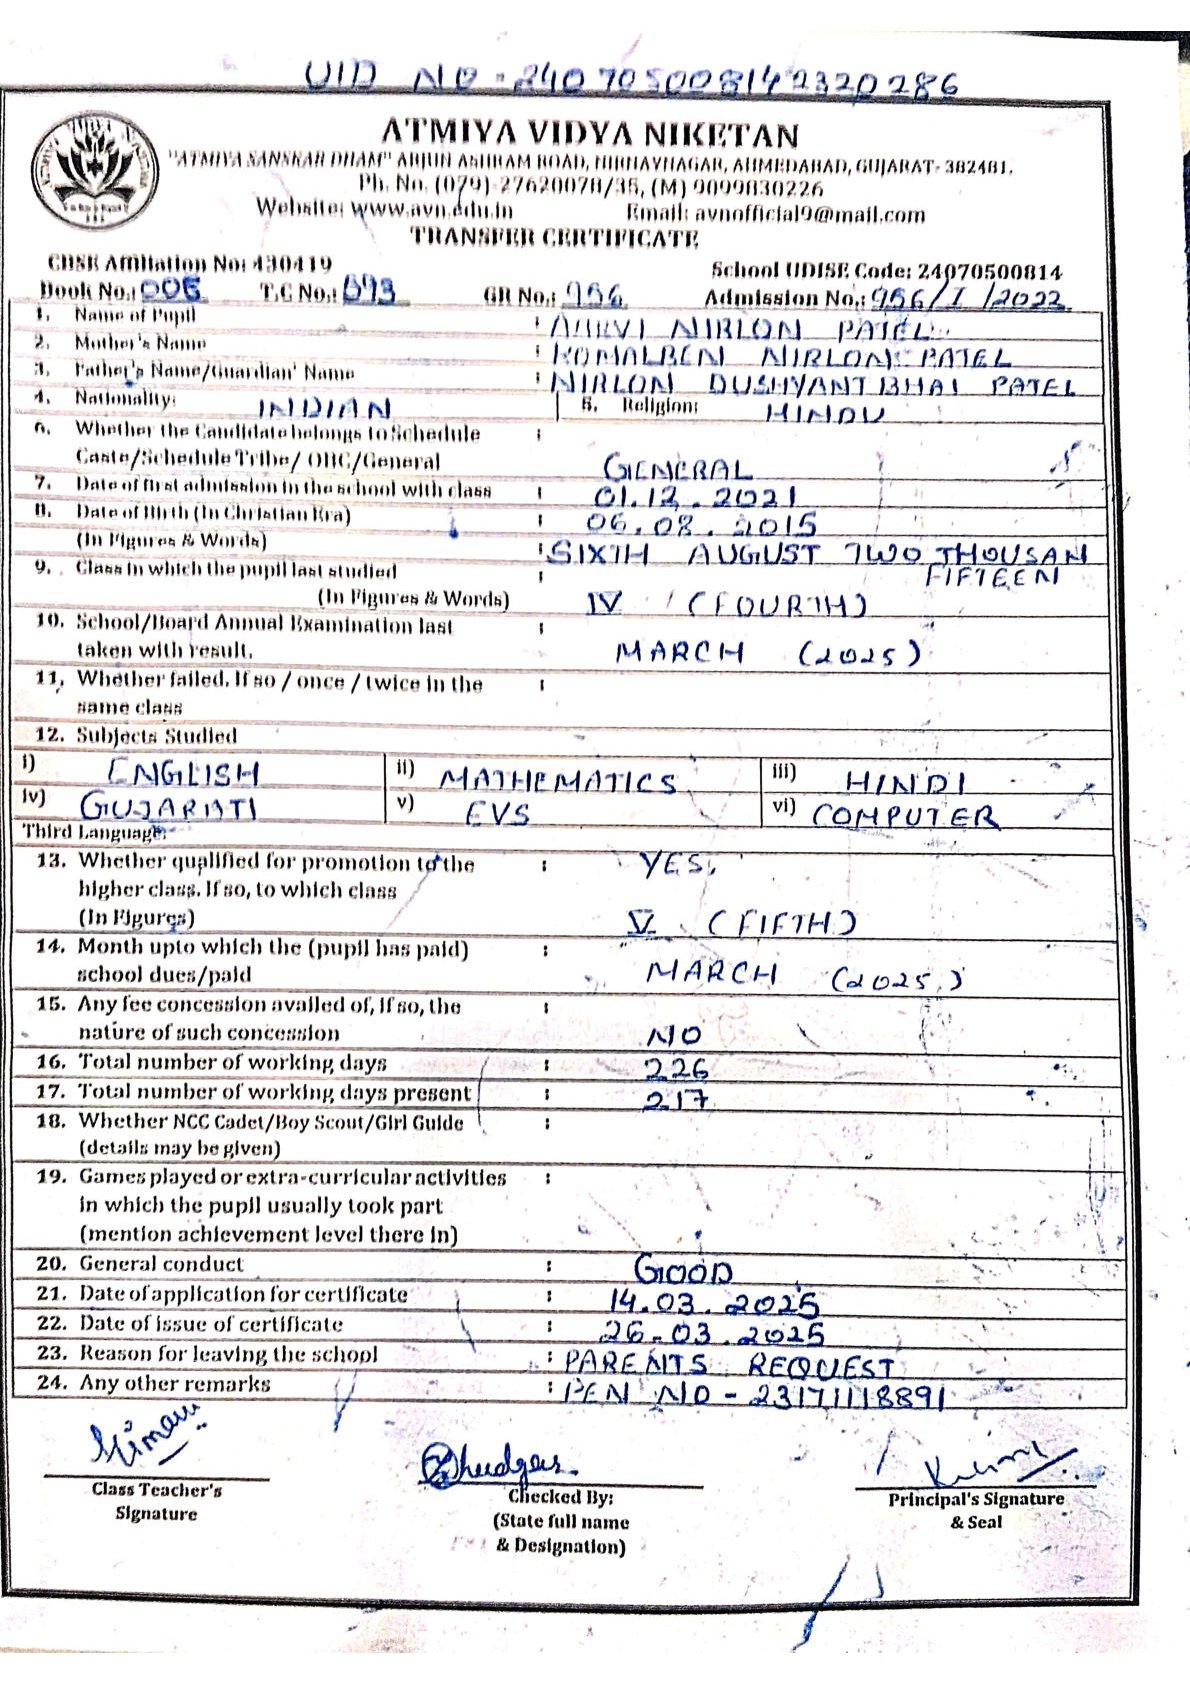 UID NO - 240705008142320286
ATMIYA VIDYA NIKETAN
"ATMIYA SANSKAR DHAM" ARJUN ASHRAM ROAD, NIRNAYNAGAR, AHMEDABAD, GUJARAT- 382481.
Ph. No. (079)-27620078/35, (M) 9099830226
Website: www.avn.edu.in Email: avnofficial9@mail.com
TRANSFER CERTIFICATE
CBSE Affiliation No: 430419 School UDISE Code: 24070500814
Book No.: 006 T.C No.: 073 GR No.: 956 Admission No.: 956/I/2022
1. Name of Pupil : NIRLON PATEL
2. Mother's Name : KOMALBEN NIRLON PATEL
3. Father's Name/Guardian' Name : NIRLON DUSHYANTBHAI PATEL
4. Nationality: INDIAN 5. Religion: HINDU
6. Whether the Candidate belongs to Schedule :
Caste/Schedule Tribe/ OBC/General GENERAL
7. Date of first admission in the school with class : 01.12.2021
8. Date of Birth (In Christian Era) : 06.08.2015
(In Figures & Words) : SIXTH AUGUST TWO THOUSAN
9. Class in which the pupil last studied : FIFTEEN
(In Figures & Words) IV (FOURTH)
10. School/Board Annual Examination last :
taken with result. MARCH (2025)
11, Whether failed. If so / once / twice in the :
same class
12. Subjects Studied
i) ENGLISH ii) MATHEMATICS iii) HINDI
iv) GUJARATI v) EVS vi) COMPUTER
Third Language:
13. Whether qualified for promotion to the : YES,
higher class. If so, to which class
(In Figures) V (FIFTH)
14. Month upto which the (pupil has paid) :
school dues/paid MARCH (2025)
15. Any fee concession availed of, if so, the :
nature of such concession NO
16. Total number of working days : 226
17. Total number of working days present : 217
18. Whether NCC Cadet/Boy Scout/Girl Guide :
(details may be given)
19. Games played or extra-curricular activities :
in which the pupil usually took part
(mention achievement level there in)
20. General conduct : GOOD
21. Date of application for certificate : 14.03.2025
22. Date of issue of certificate : 26.03.2025
23. Reason for leaving the school : PARENTS REQUEST
24. Any other remarks : PEN NO - 23171118891
Class Teacher's
Signature
Checked By:
(State full name
& Designation)
Principal's Signature
& Seal